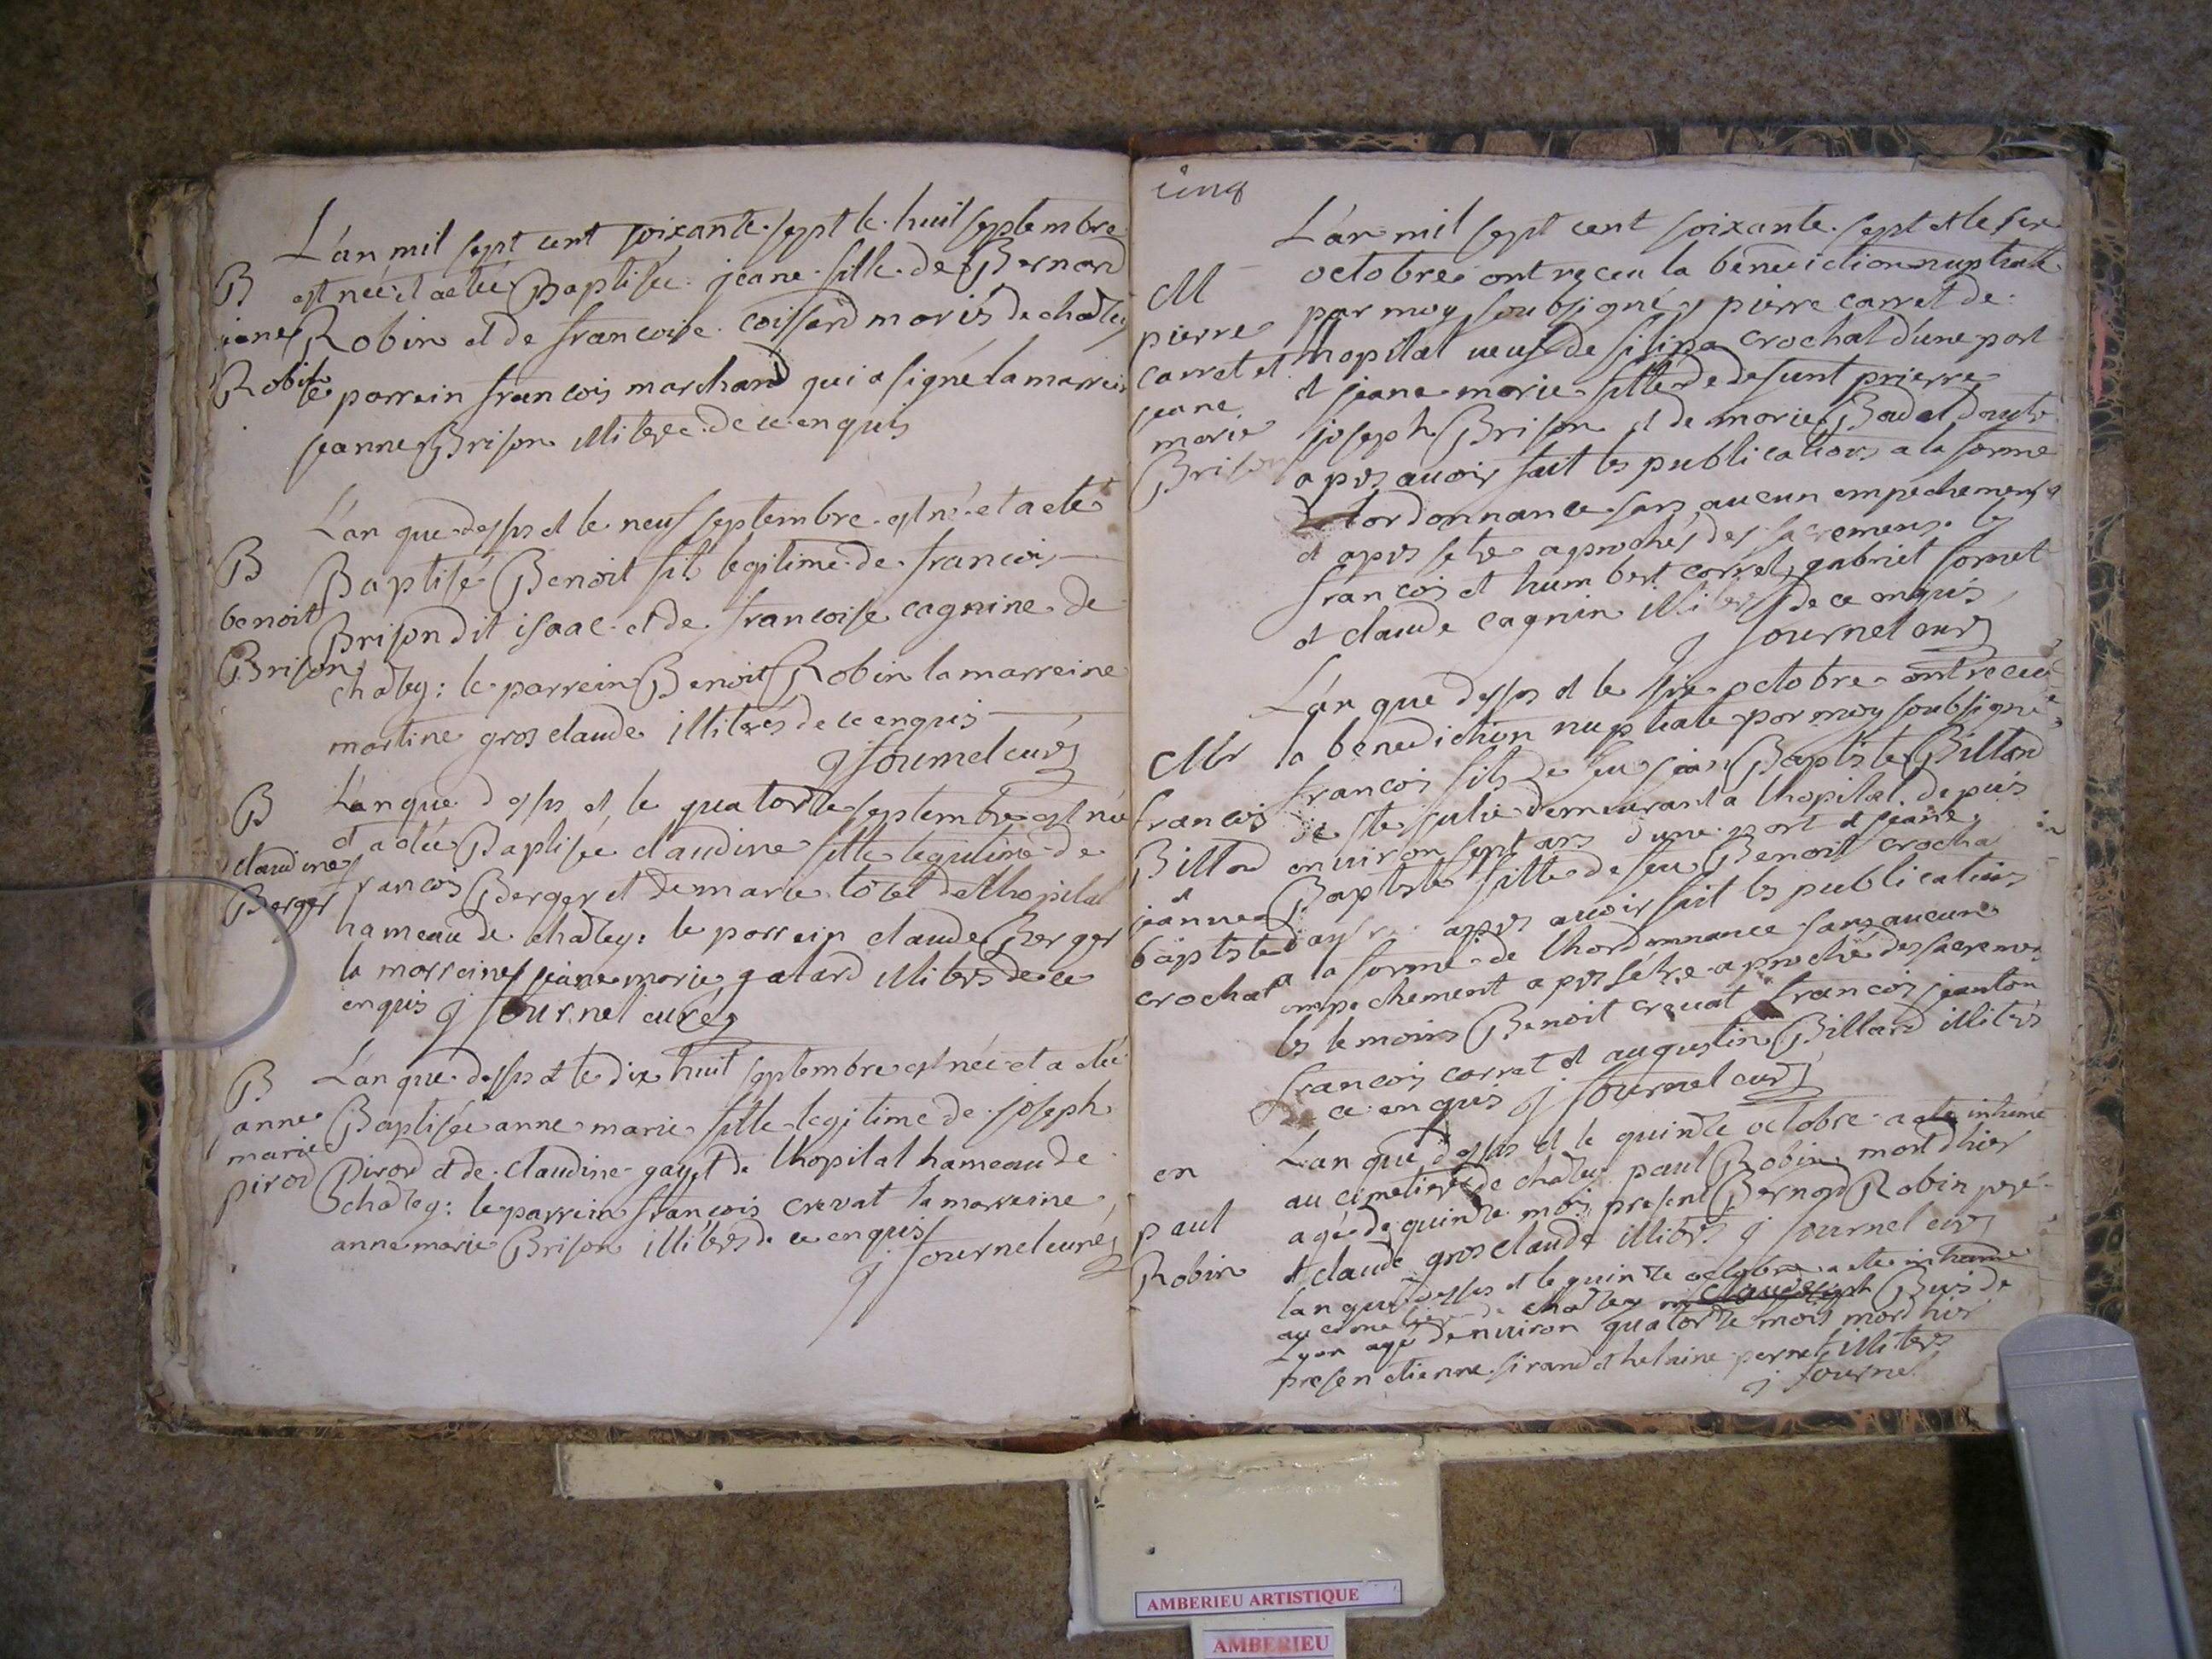 L'an mil sept cent soixante sept le huit septembre
B
est née et a eté Baptisée jeane fille de Bernard
jeane Robin et de francoise coissard mariés de chaley
Robin le parrein francois marchand qui a signé la marreine
jeanne Brison illiteree de ce enquis
L'an que dessus et le neuf septembre est né et a eté
B
Baptisé Benoit fils legitime de francois
benoit
Brison dit isaac et de francoise cagnine de
Brison
chaley: le parrein Benoit Robin la marreine
martine grosclaude illiterés de ce enquis
j fournel curé
B
L'an que dessus et le quatorze septembre est née
et a eté Baptisée claudine fille legitime de
claudine
francois Berger et de marie totel de lhopital
Berger
hameau de chaley: le parrein claude Berger
la marreine jeane marie galard illiterés de ce
enquis j fournel curé
B
L'an que dessus et le dix huit septembre est née et a eté
anne
Baptisée anne marie fille legitime de joseph
marie
pirod
Pirod et de claudine gayet de lhopital hameau de
chaley: le parrein francois crevat la marreine
anne marie Brison illiterés de ce enquis
j fournel curé
cinq
L'an mil sept cent soixante sept et le six
octobre ont receu la benediction nuptiale
M
par moy soubsigné pierre carret de
pierre
lhopital veuf de crochat d'une part
carret et
et jeane marie fille de defunt prierre
jeane
marie
joseph Brison et de marie Badet
Brison
apres avoir fait les publications a la forme
de lordonnance sans aucun empechement
et apres setre aprochés des sacremens
francois et humbert carret, gabriel fornet
et claude cagnin illiterés de ce enquis
j fournel curé
L'an que dessus et le six octobre ont receu
la benediction nuptiale par moy soubsigné
Mr
francois fils de feu jean Baptiste Billard
francois
de ste julie demeurant a lhopital depuis
Billard
environ sept ans d'une part et jeane
et
jeanne
Baptiste fille de feu Benoit crochat
baptiste
apres avoir fait les publications
crochat
a la forme de lhordonnance sans aucun
empechement apres sétre aproché des sacremens
les temoins Benoit crevat francois jeanton
francois carret et augustin Billard illiterés
ce enquis j fournel curé
L'an que dessus et le quinze octobre a eté inhumé
en
au cimetiere de chaley paul Robin mort d'hier
paul
agé de quinze mois present Bernard Robin pere
Robin
et claude grosclaude illiterés j fournel curé
lan que dessus et le quinze octobre a eté inhumé
au cimetiere de chaley Buis de
Lyon agé denviron quatorze mois mort hier
presen etienne sirand et pernet illiterés
j fournel
AMBERIEU ARTISTIQUE
AMBERIEU